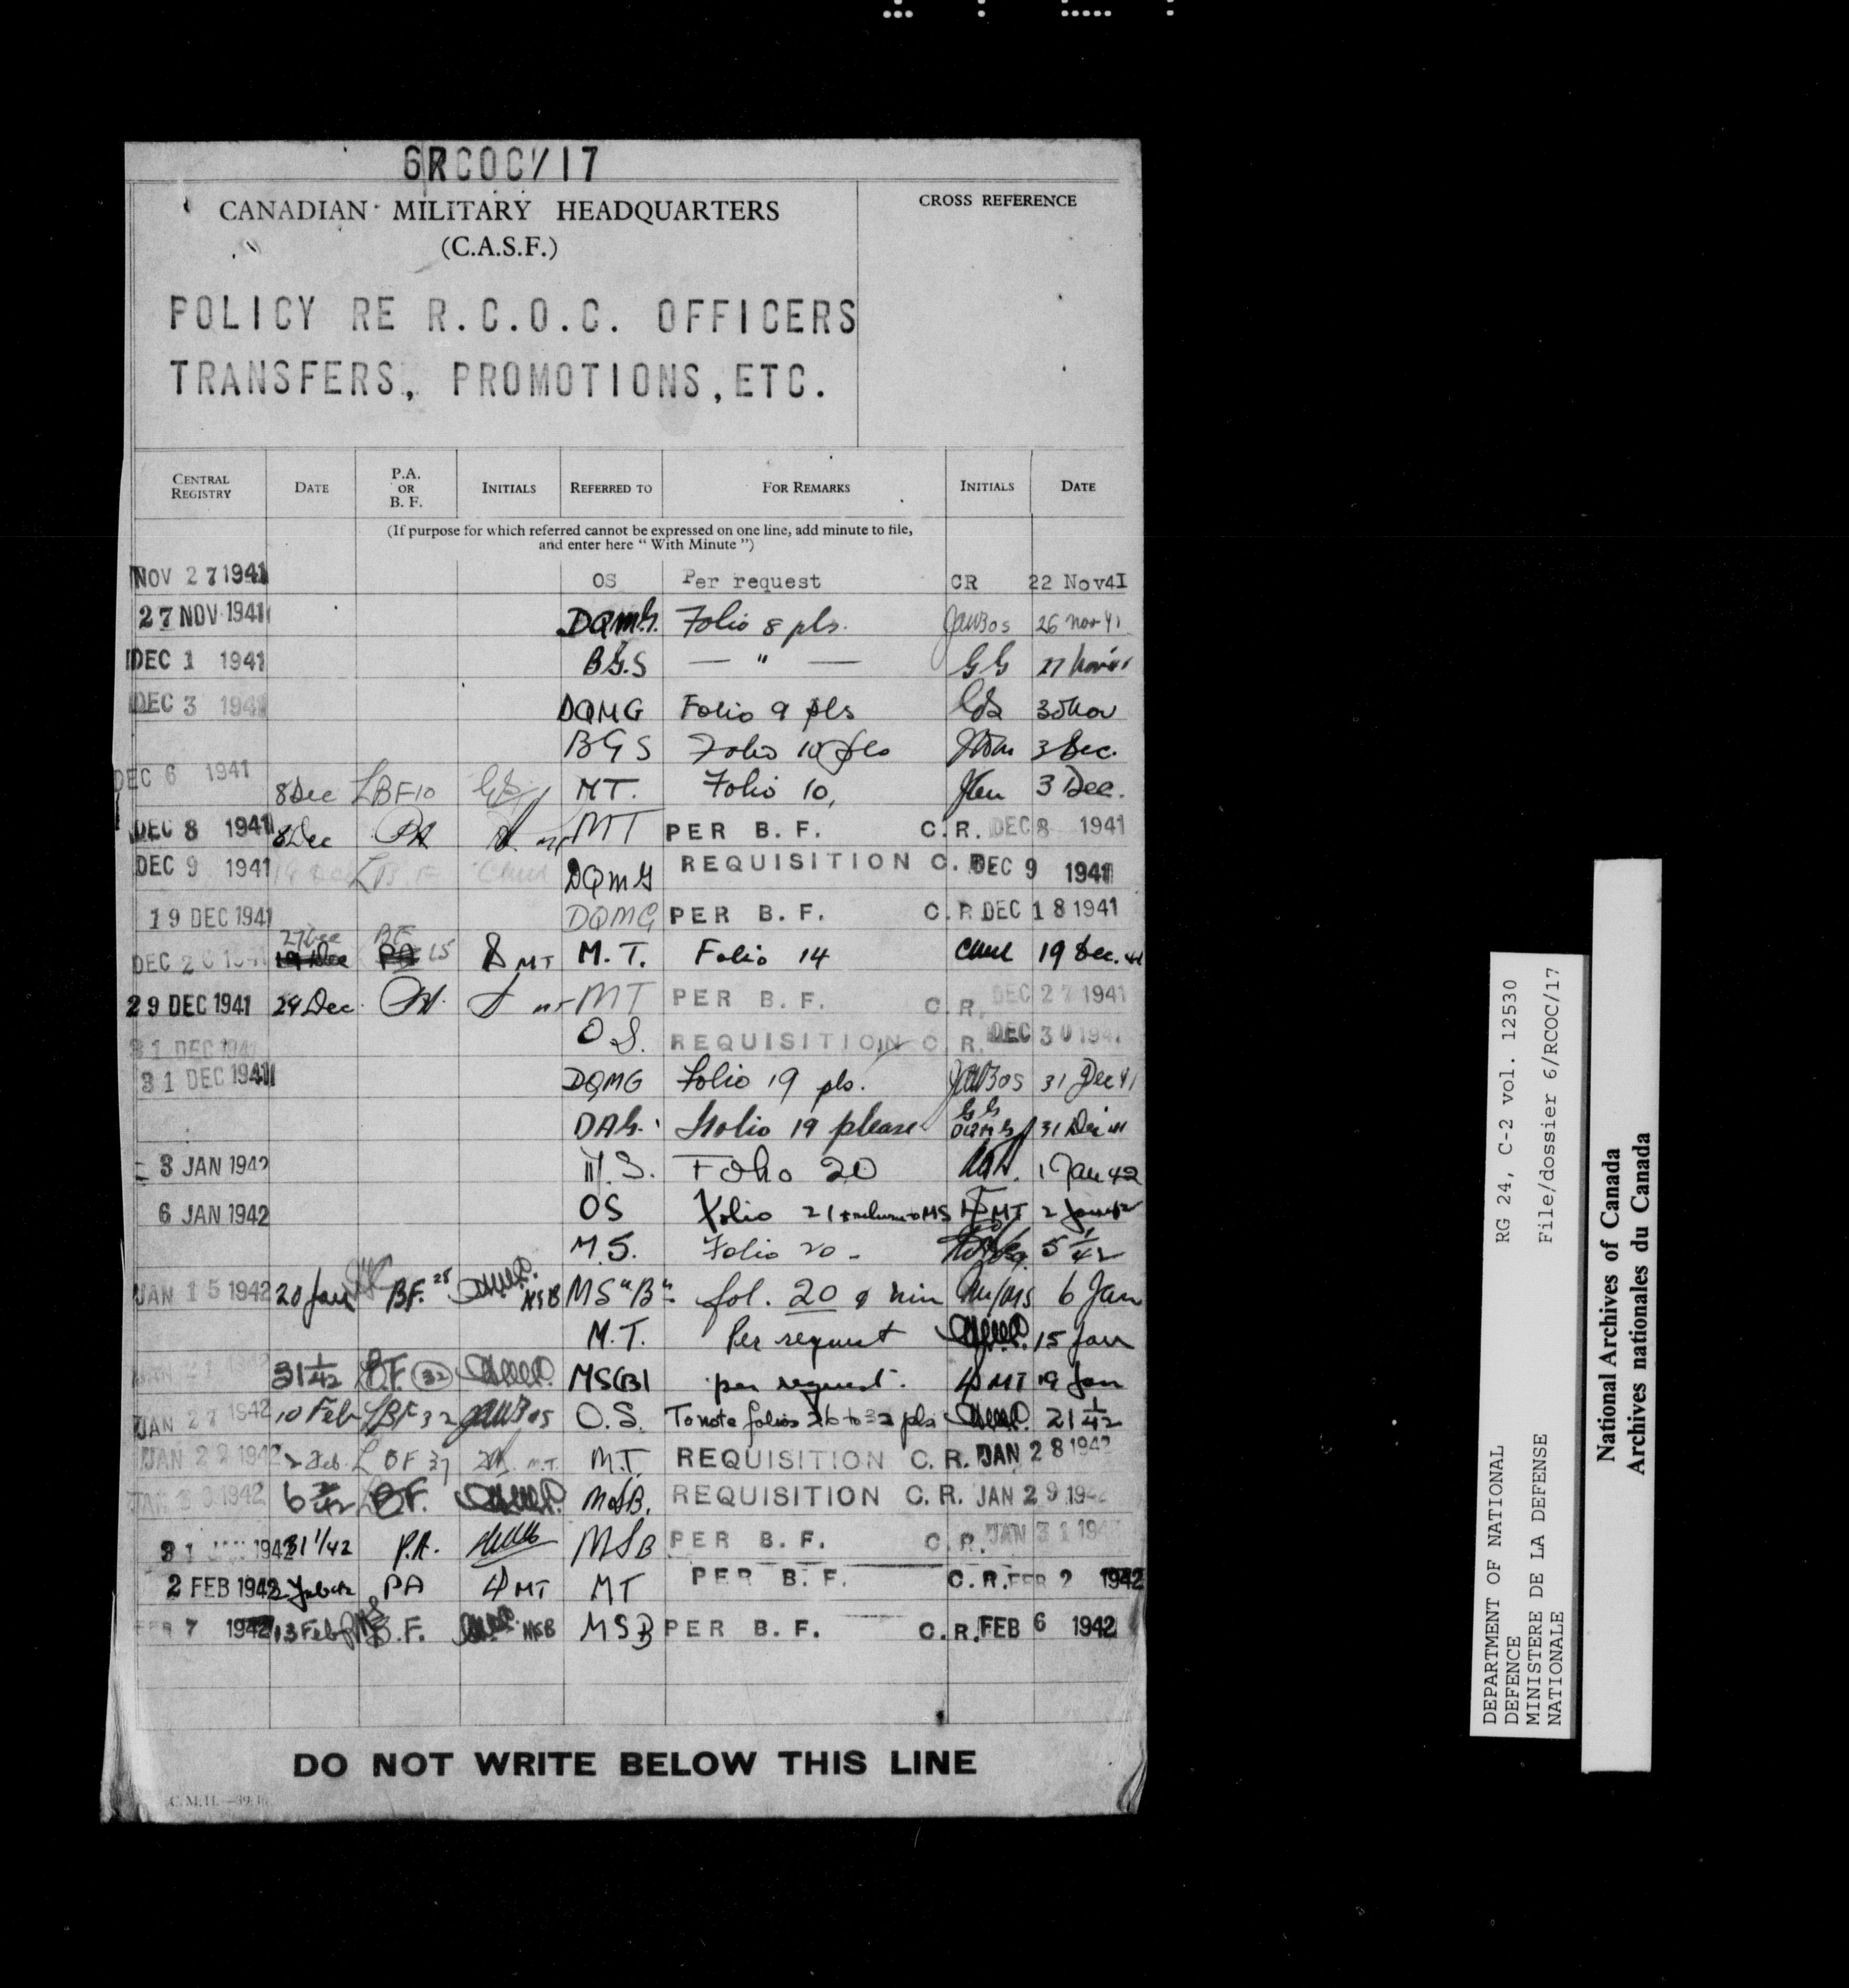 6RCOC/17
CANADIAN MILITARY HEADQUARTERS
(C.A.S.F.)
CROSS REFERENCE
POLICY RE R.C.O.C. OFFICERS
TRANSFERS, PROMOTIONS, ETC.
CENTRAL REGISTRY DATE P.A. OR B. F. INITIALS REFERRED TO FOR REMARKS INITIALS DATE
(If purpose for which referred cannot be expressed on one line, add minute to file,
and enter here "With Minute")
NOV 27 1941 OS Per request CR 22 Nov41
27 NOV 1941 DQMG. Folio 8 pls. 26 Nov 41
DEC 1 1941 BGS — " — GG 27 Nov 41
DEC 3 1941 DQMG Folio 9 pls 30 Nov
BGS Folio 10 pls 3 Dec.
DEC 6 1941 8 Dec LBF10 MT. Folio 10, 3 Dec.
DEC 8 1941 8 Dec PA MT PER B. F. C.R. DEC 8 1941
DEC 9 1941 DQMG REQUISITION C. R. DEC 9 1941
19 DEC 1941 DQMG PER B. F. C.R. DEC 18 1941
DEC 20 1941 27 Dec BF 15 MT M.T. Folio 14 19 Dec. 41
29 DEC 1941 29 Dec. PA. MT PER B. F. C.R. DEC 27 1941
31 DEC 1941 O S. REQUISITION C. R. DEC 30 1941
31 DEC 1941 DQMG Folio 19 pls. 31 Dec 41
DAG. Folio 19 please GG DQMG 31 Dec 41
3 JAN 1942 M.S. Folio 20 1 Jan 42
6 JAN 1942 OS Folio 21 MS MT 2 Jan 42
M.S. Folio 20 - 5 1/42
JAN 15 1942 20 Jan BF. 25 MSB MS "B" fol. 20 & min 6 Jan
M.T. Per request 15 Jan
JAN 21 1942 31 1/42 B.F. 32 MS(B) per request. MT 19 Jan
JAN 27 1942 10 Feb LBF 32 O.S. To note folios 26 to 32 pls 21 1/42
JAN 29 1942 2 Feb. L BF 37 M.T. M.T. REQUISITION C. R. JAN 28 1942
JAN 30 1942 6 2/42 BF. MSB. REQUISITION C. R. JAN 29 1942
31 JAN 1942 31 1/42 P.A. MSB PER B. F. C.R. JAN 31 1942
2 FEB 1942 PA MT MT PER B. F. C.R. FEB 2 1942
FEB 7 1942 13 Feb B.F. MSB MSB PER B. F. C.R. FEB 6 1942
DO NOT WRITE BELOW THIS LINE
DEPARTMENT OF NATIONAL
DEFENCE
MINISTERE DE LA DEFENSE
NATIONALE
RG 24, C-2 vol. 12530
File/dossier 6/RCOC/17
National Archives of Canada
Archives nationales du Canada